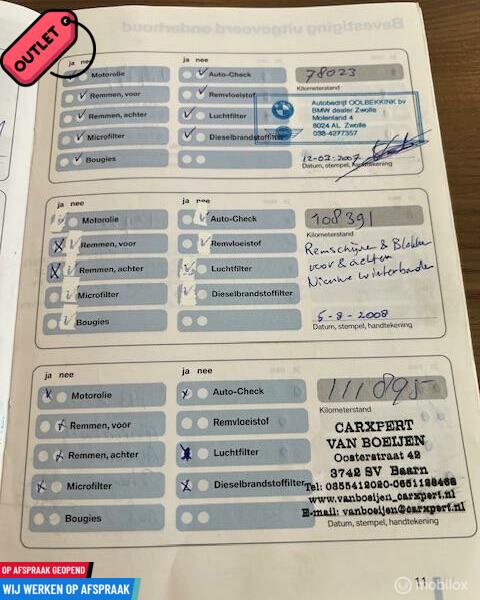 OUTLET
ja nee
Motorolie
Remmen, voor
Remmen, achter
Microfilter
Bougies
ja nee
Auto-Check
Remvloeistof
Luchtfilter
Dieselbrandstoffilter
78023
Kilometerstand
Autobedrijf OOLBEKKINK bv
BMW dealer Zwolle
Molenland 4
8024 AL Zwolle
038-4277357
12-02-2007
Datum, stempel, handtekening
ja nee
Motorolie
Remmen, voor
Remmen, achter
Microfilter
Bougies
ja nee
Auto-Check
Remvloeistof
Luchtfilter
Dieselbrandstoffilter
108391
Kilometerstand
Remschijven & Blokken
voor & achter
Nieuwe winterbanden
5-8-2008
Datum, stempel, handtekening
ja nee
Motorolie
Remmen, voor
Remmen, achter
Microfilter
Bougies
ja nee
Auto-Check
Remvloeistof
Luchtfilter
Dieselbrandstoffilter
111895
Kilometerstand
CARXPERT
VAN BOEIJEN
Oosterstraat 42
3742 SV Baarn
Tel: 0355412020-0651128468
www.vanboeijen_carxpert.nl
E-mail: vanboeijen@carxpert.nl
Datum, stempel, handtekening
11
OP AFSPRAAK GEOPEND
WIJ WERKEN OP AFSPRAAK
mobilox